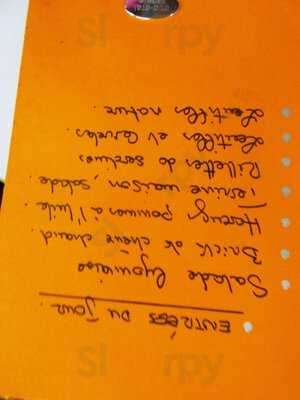 ENTRÉES DU JOUR
Salade lyonnaise
Brick de chèvre chaud.
Hareng pommes à l'huile
Terrine maison, salade
Rillettes de sardines
Lentilles et cervelas.
Lentilles nature.